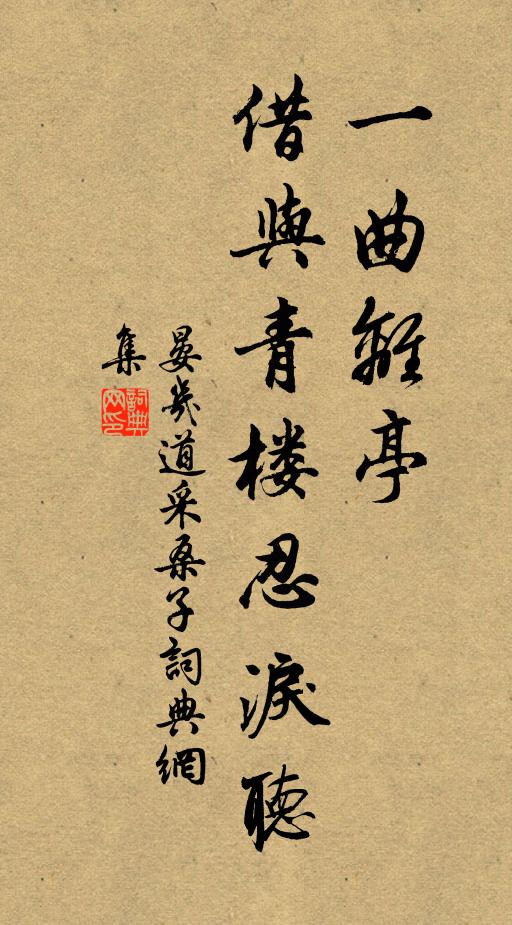 一曲離亭
借與青楼忍淚聽
晏幾道采桑子詞典網
集
詞典網印